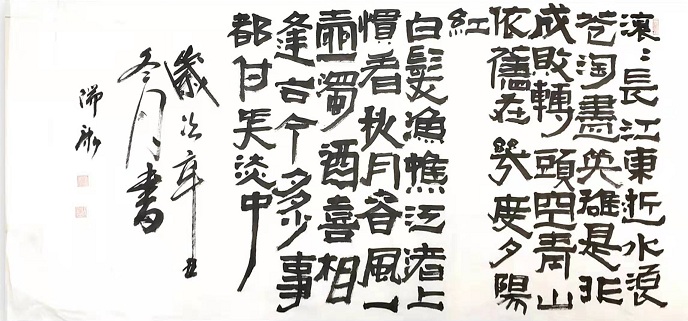 滾〻長江東逝水浪
花淘盡英雄是非
成敗轉頭空青山
依舊在幾度夕陽
紅
白髮漁樵江渚上
慣看秋月春風一
壺濁酒喜相
逢古今多少事
都付笑談中
歲次辛丑
冬月書
瑞